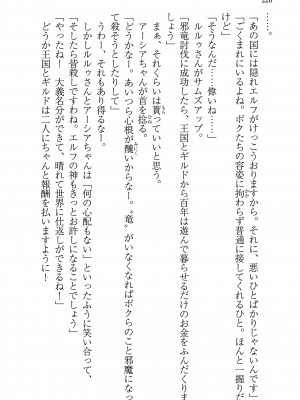 228
……。
「あの国には隠れエルフがけっこうおりますから。それに、悪いひとばかりじゃないんです」
「ごくまれにいるよね。ボクたちの容姿に拘わらず普通に接してくれるひと。ほんと一握りだ
けど」
「そうなんだ……偉いね」
ルルゥさんがサムズアップ。
「邪竜討伐に成功したら、王国とギルドから百年は遊んで暮らせるだけのお金をふんだくりま
しょう」
「それくらい貰っていいと思う」
アーシアちゃんが首を捻る。
「どうかなー。あいつら心根が醜いからなー。〝竜〟がいなくなればボクらのこと邪魔になっ
て殺そうとしたりして」
うわー、それもあり得るなー。
しかしルルゥさんとアーシアちゃんは「何の心配もない」といったふうに笑い合って、
「そしたら皆殺しですわね。エルフの神もきっとお許しになることでしょう」
「やったね！　大義名分ができて、晴れて世界に仕返しができるね！」
どうか王国とギルドは二人にちゃんと報酬を払いますように！